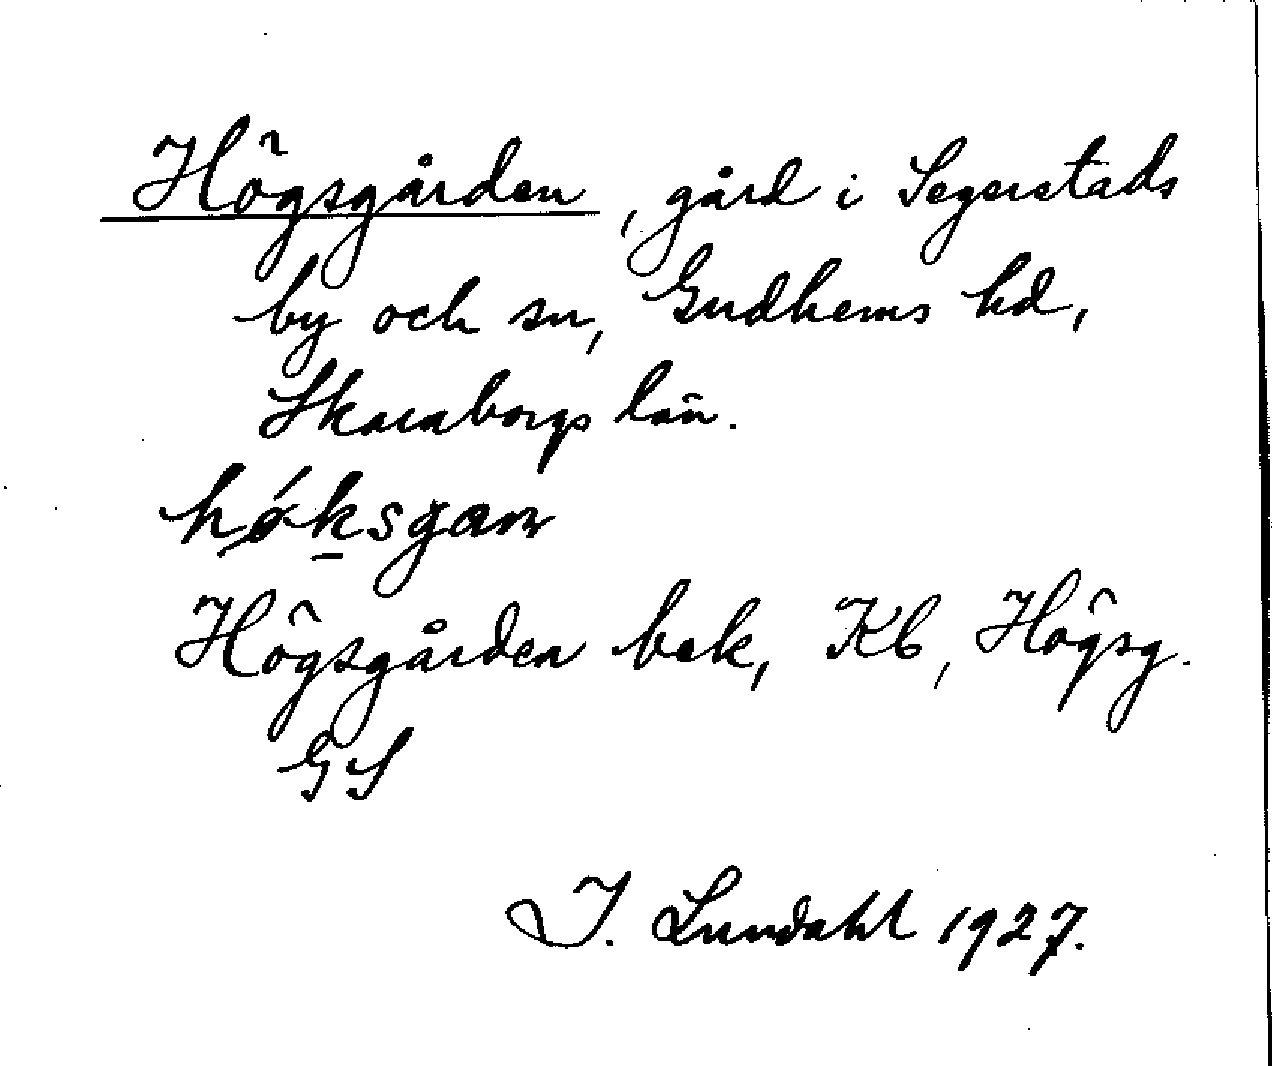 Högsgården, gård i Segerstads
by och sn, Gudhems hd,
Skaraborgs län.
hǿksgan
Högsgården bek, Kb, Högsg.
GS
I. Lundahl 1927.